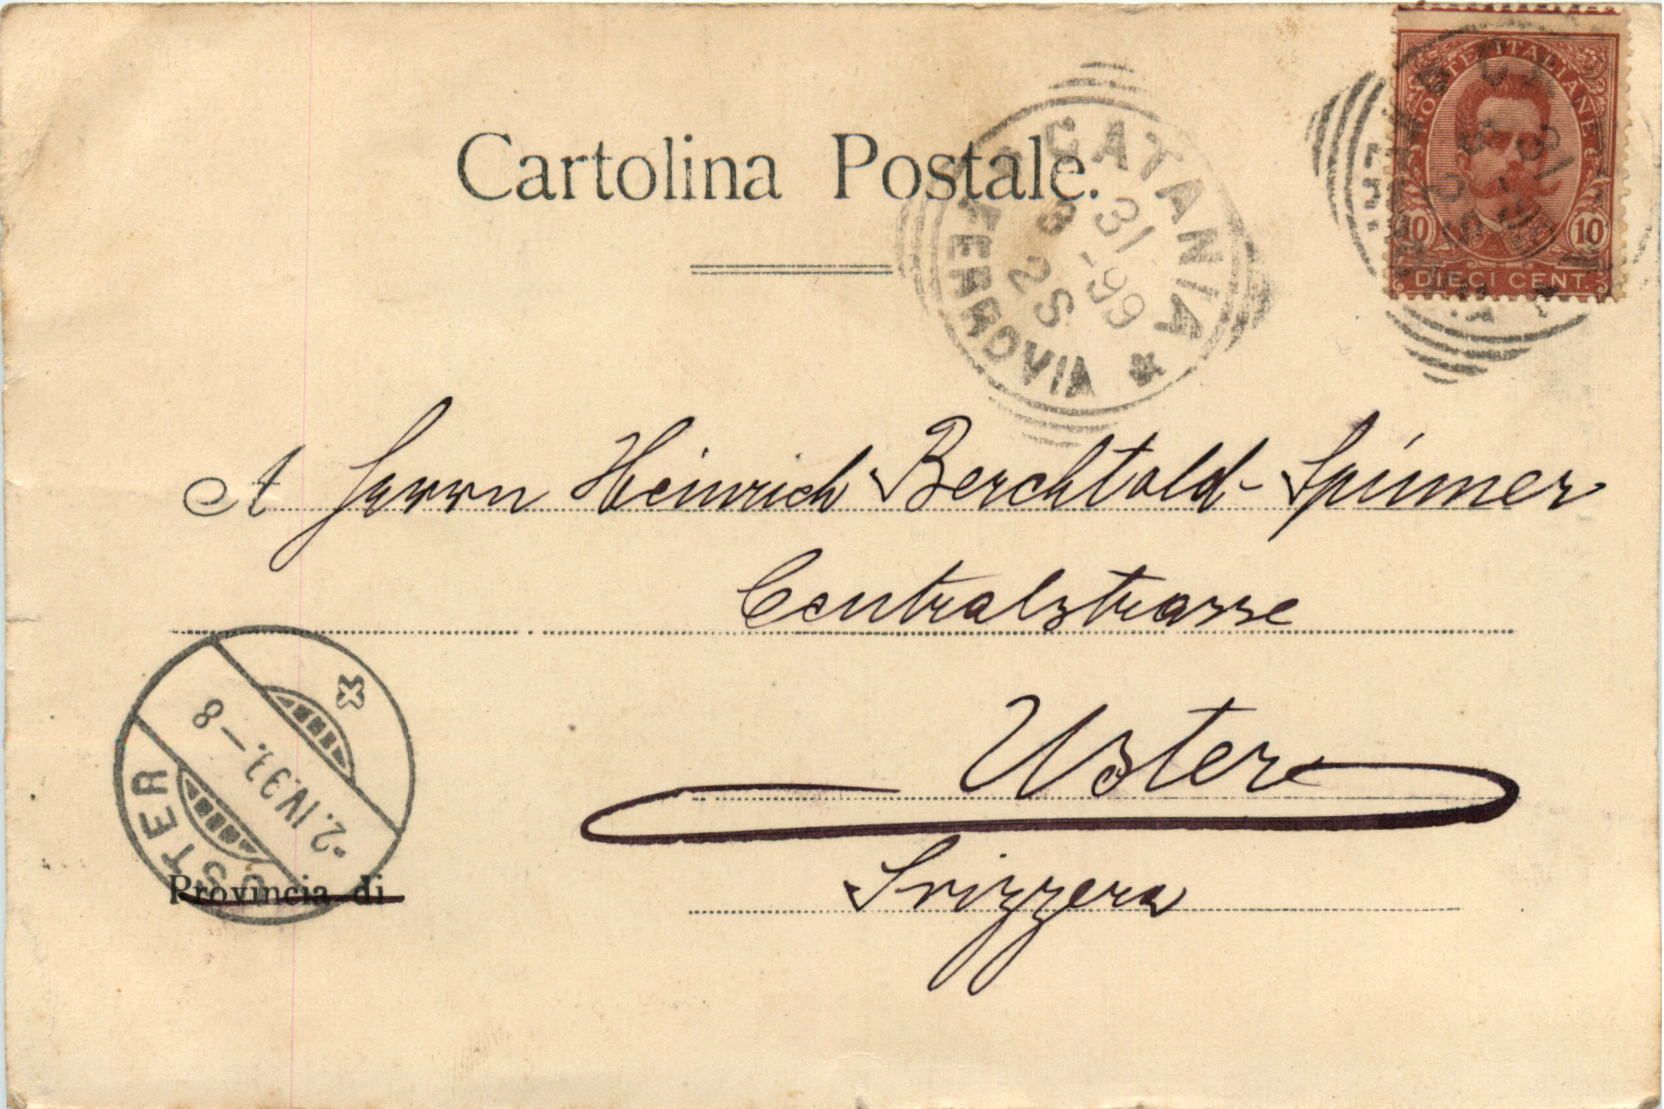 POSTE ITALIANE
10 10
DIECI CENT.
Cartolina Postale.
CATANIA
FERROVIA
31
8 -99
2S
A Herrn Heinrich Berchtold-Spinner
Centralstrasse
Uster
Svizzera
Provincia di
USTER
-2.IV.99.-8